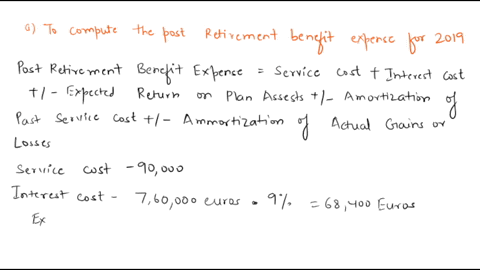 a) To compute the post Retirement benefit expense for 2019
Post Retirement Benefit Expense = Service cost + Interest cost
+/- Expected Return on Plan Assests +/- Amortization of
Past Service cost +/- Ammortization of Actual Gains or
Losses
Service cost - 90,000
Interest cost - 7,60,000 euros • 9% = 68,400 Euros
Ex